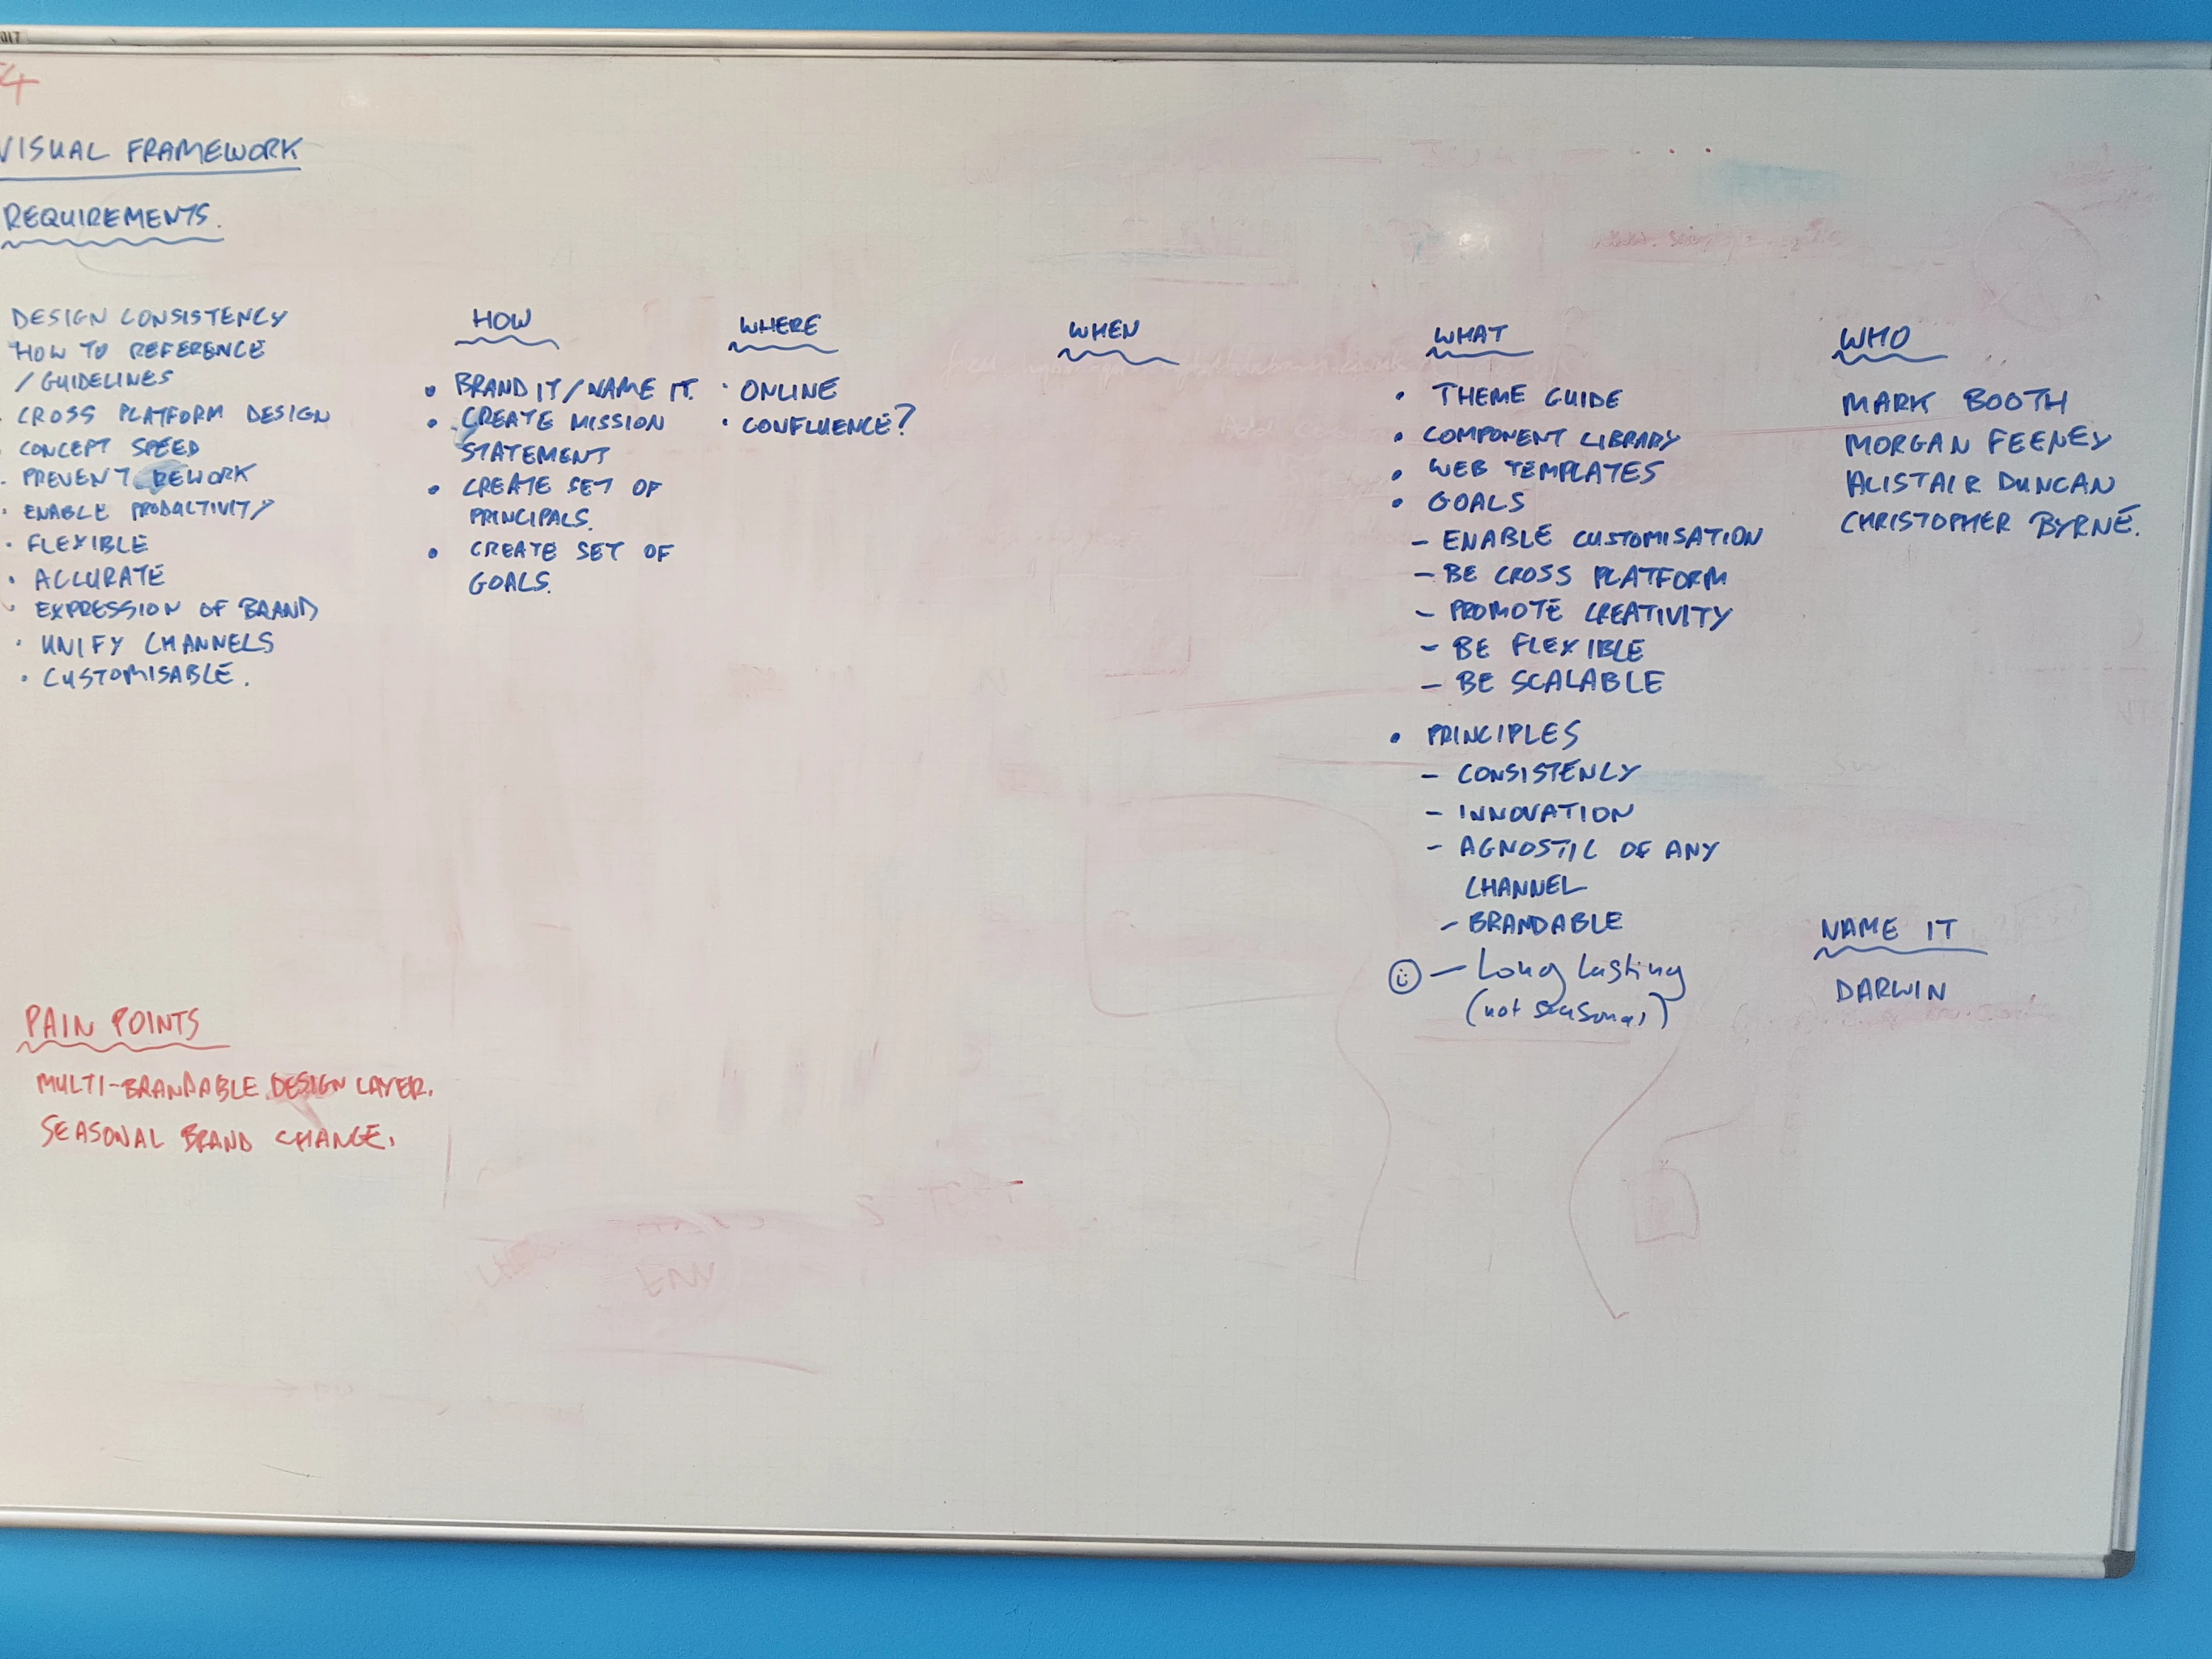 VISUAL FRAMEWORK
REQUIREMENTS.
DESIGN CONSISTENCY
HOW TO REFERENCE
/ GUIDELINES
CROSS PLATFORM DESIGN
CONCEPT SPEED
PREVENT REWORK
• ENABLE PRODUCTIVITY
• FLEXIBLE
• ACCURATE
• EXPRESSION OF BRAND
• UNIFY CHANNELS
• CUSTOMISABLE.
PAIN POINTS
MULTI-BRANDABLE DESIGN LAYER.
SEASONAL BRAND CHANGE.
HOW
• BRAND IT / NAME IT.
• CREATE MISSION
STATEMENT
• CREATE SET OF
PRINCIPALS.
• CREATE SET OF
GOALS.
WHERE
• ONLINE
• CONFLUENCE?
WHEN
WHAT
• THEME GUIDE
• COMPONENT LIBRARY
• WEB TEMPLATES
• GOALS
– ENABLE CUSTOMISATION
– BE CROSS PLATFORM
– PROMOTE CREATIVITY
– BE FLEXIBLE
– BE SCALABLE
• PRINCIPLES
– CONSISTENCY
– INNOVATION
– AGNOSTIC OF ANY
CHANNEL
– BRANDABLE
– Long lasting
(not seasonal)
WHO
MARK BOOTH
MORGAN FEENEY
ALISTAIR DUNCAN
CHRISTOPHER BYRNE.
NAME IT
DARWIN